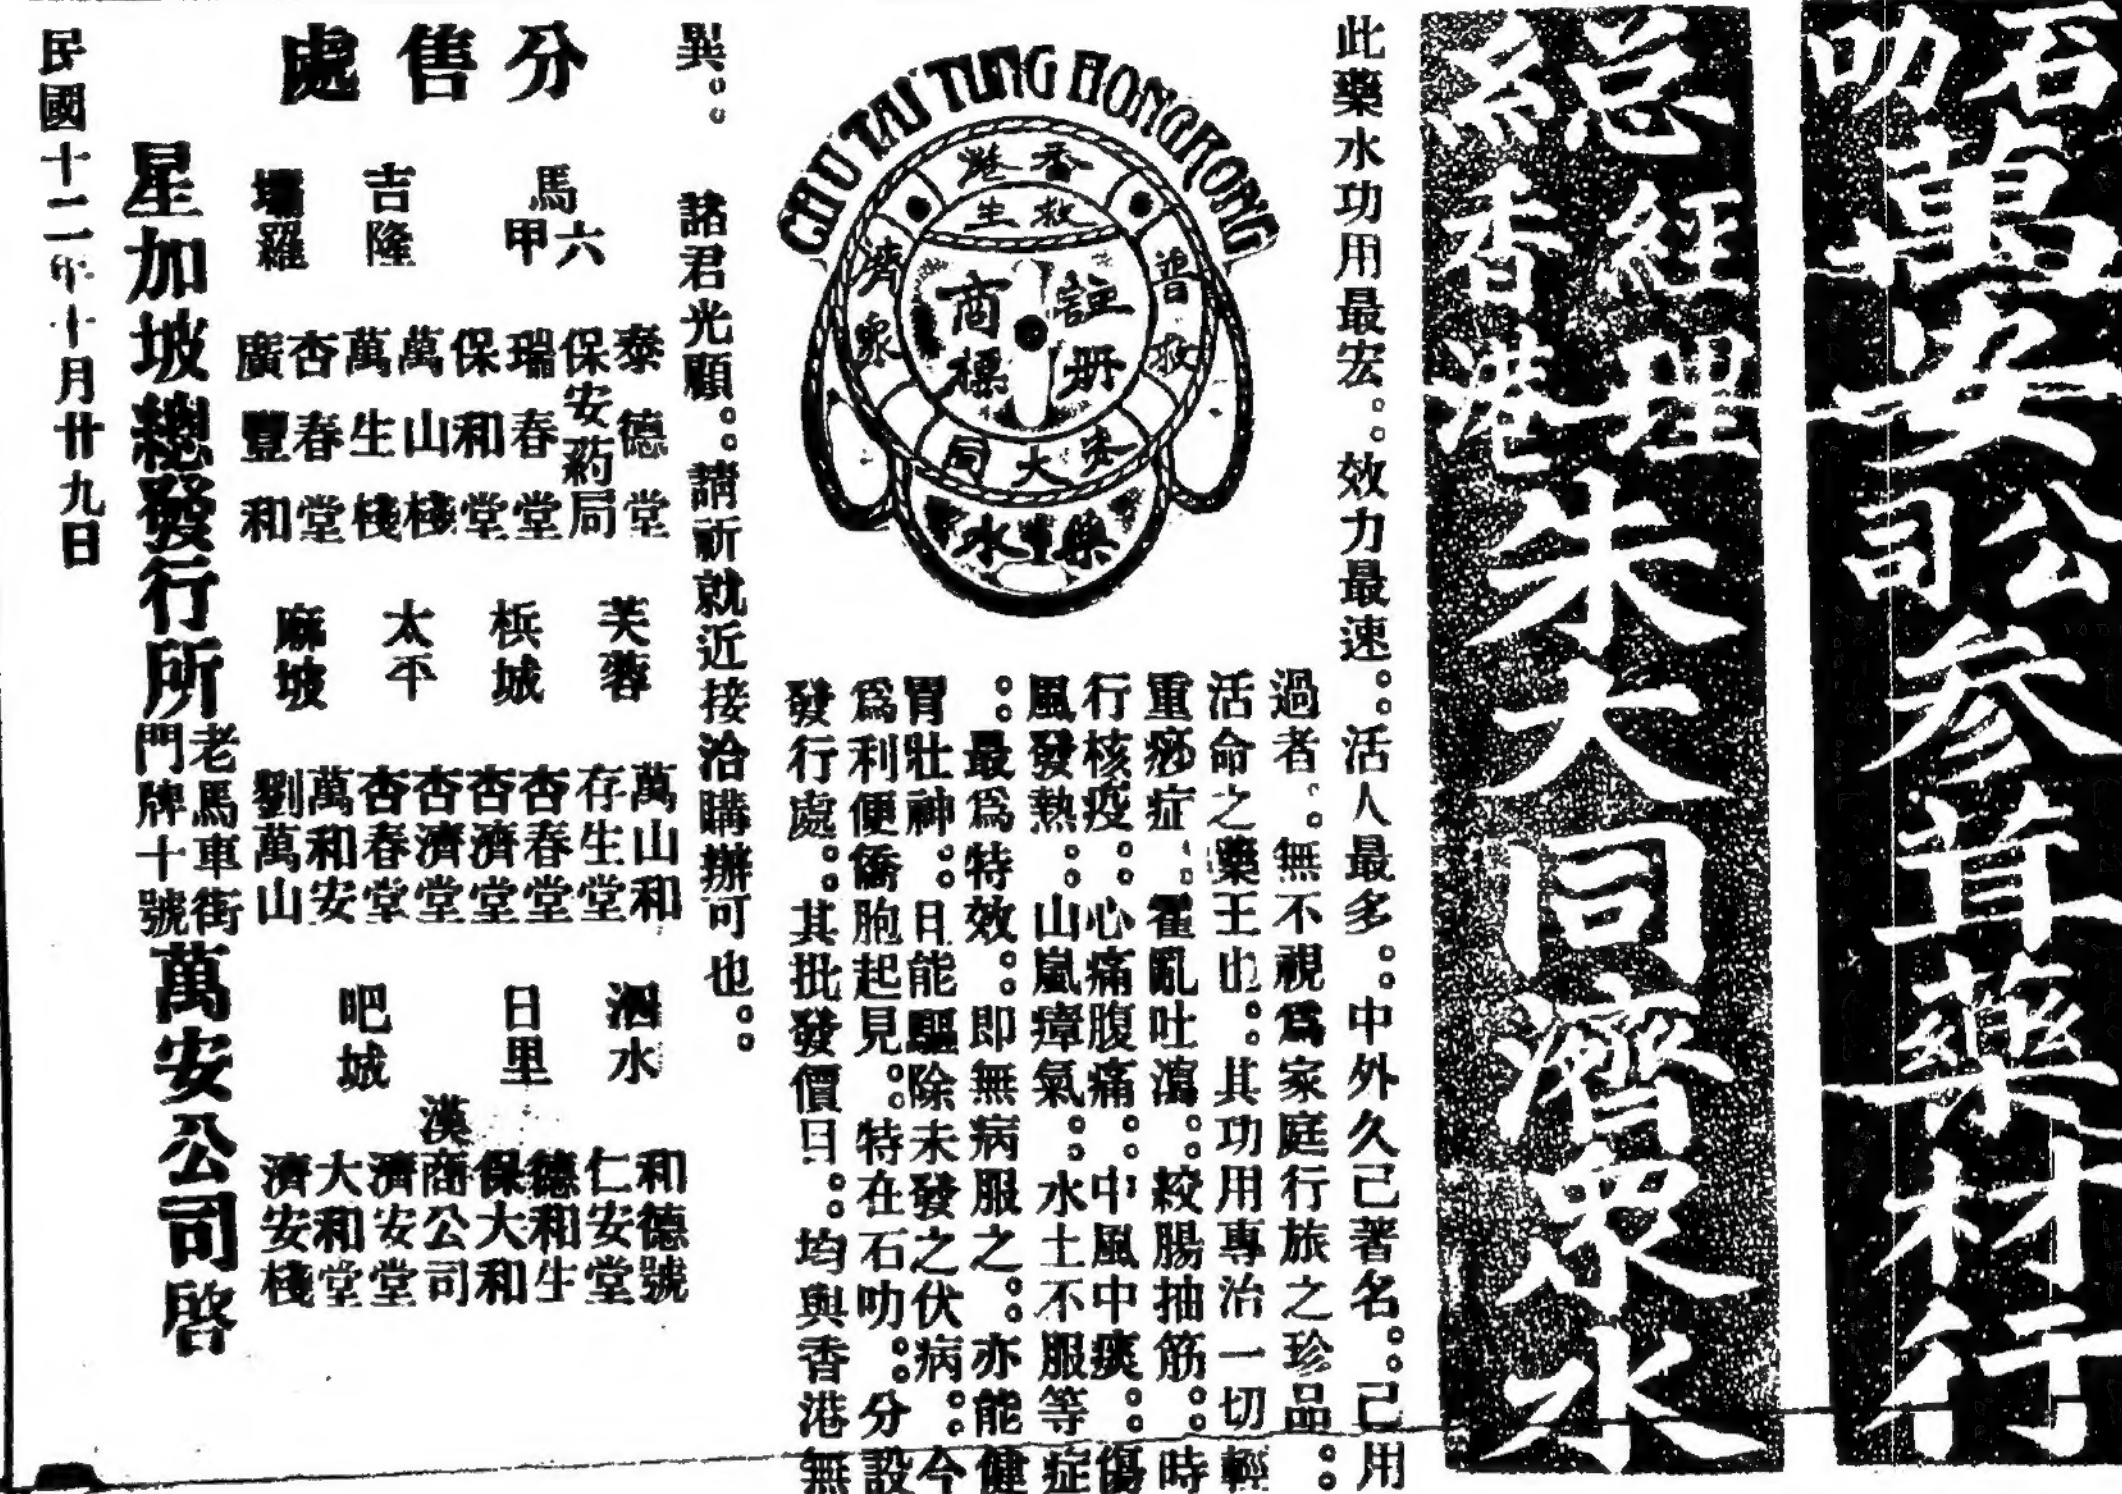 石叻萬安公司參茸藥材行
总經理
絲香港朱大同濟眾水
此藥水功用最宏。。效力最速。。活人最多。。中外久己著名。。己用
過者。。無不視爲家庭行旅之珍品。。
活命之藥王也。。其功用專治一切輕
重痧症。。霍亂吐瀉。。絞腸抽筋。。時
行核疫。。心痛腹痛。。中風中痰。。傷
風發熱。。山嵐瘴氣。。水土不服等症
。。最爲特效。。即無病服之。。亦能健
胃壯神。。且能驅除未發之伏病。。今
爲利便僑胞起見。。特在石叻。。分設
發行處。。其批發價目。。均與香港無
CHU TAI TUNG HONGKONG
香港
救生
普救
濟衆
註册商標
朱大同
藥水
異。。 諸君光顧。。請祈就近接洽購辦可也。。
分售處
馬六甲
泰德堂
保安葯局
瑞春堂
保和堂
吉隆
萬山棧
萬生棧
壩羅
杏春堂
廣豐和
芙蓉
萬山和
存生堂
梹城
杏春堂
杏濟堂
太平
杏濟堂
杏春堂
麻坡
萬和安
劉萬山
泗水
和德號
仁安堂
日里
德和生
保大和
漢商公司
吧城
濟安堂
大和堂
濟安棧
星加坡總發行所老馬車街門牌十號萬安公司啓
民國十二年十月廿九日